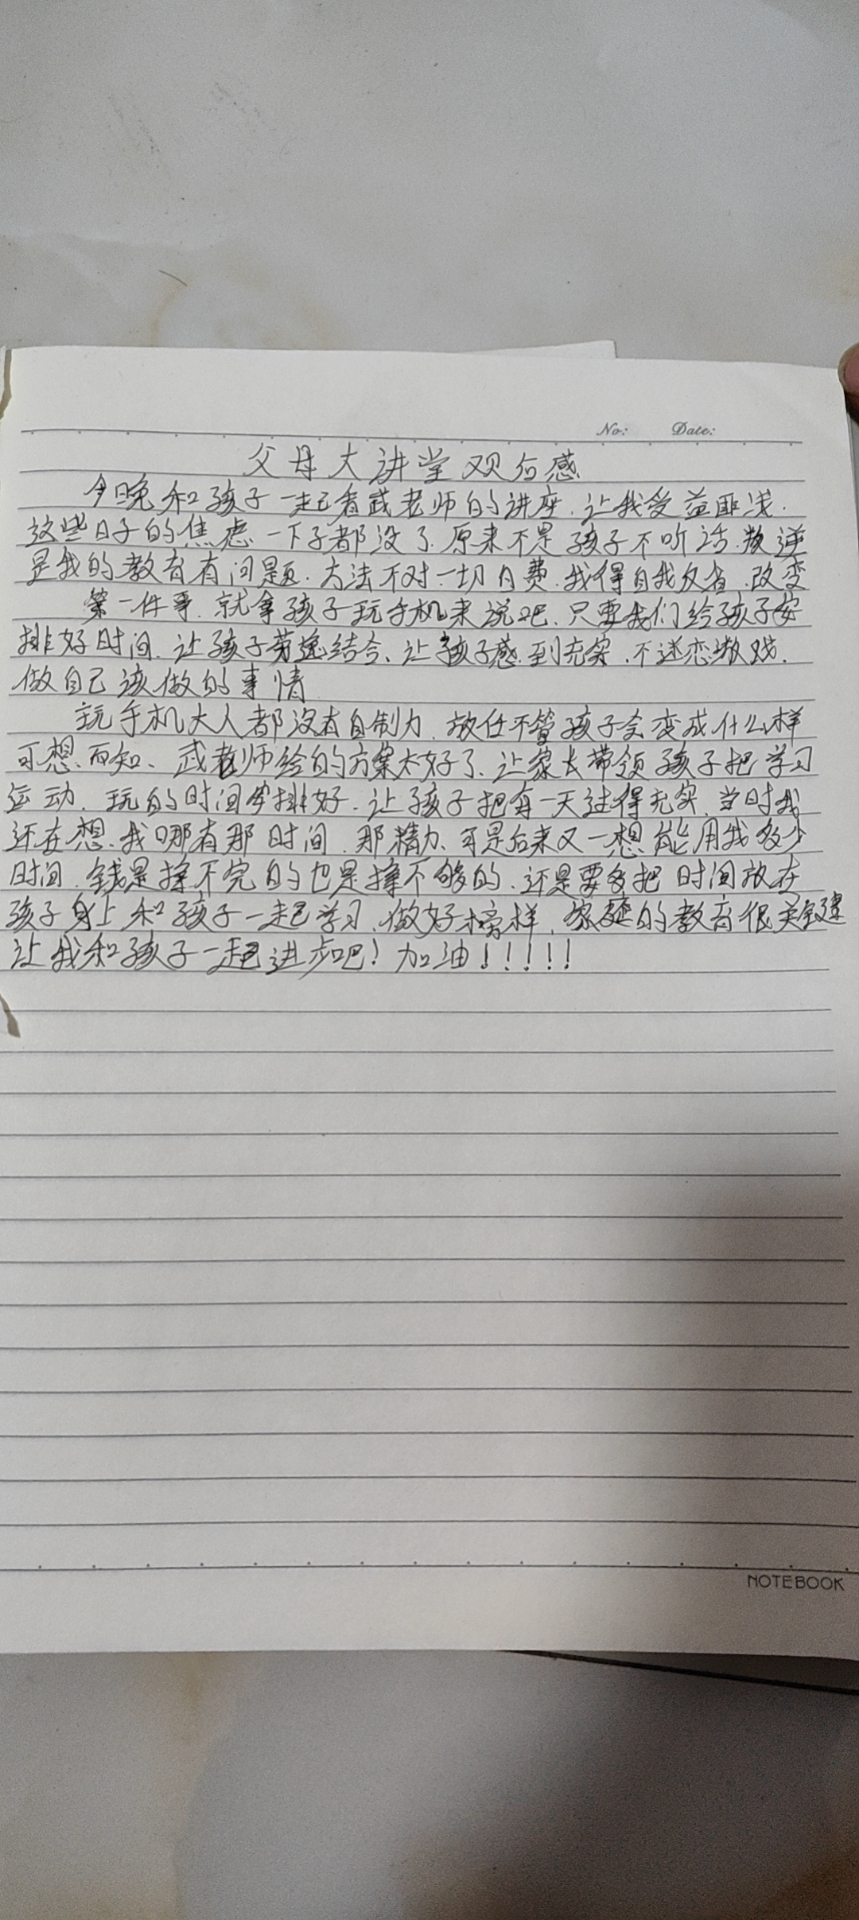 No: Date:
父母大讲堂观后感
今晚和孩子一起看武老师的讲座.让我受益匪浅.
这些日子的焦虑一下子都没了.原来不是孩子不听话.叛逆
是我的教育有问题.方法不对一切白费.我得自我反省.改变
第一件事.就拿孩子玩手机来说吧.只要我们给孩子安
排好时间.让孩子劳逸结合、让孩子感到充实.不迷恋游戏.
做自己该做的事情
玩手机大人都没有自制力.放任不管孩子会变成什么样
可想而知、武老师给的方案太好了.让家长带领孩子把学习
运动.玩的时间安排好.让孩子把每一天过得充实.当时我
还在想.我哪有那时间.那精力.可是后来又一想能用我多少
时间.钱是挣不完的也是挣不够的.还是要多把时间放在
孩子身上和孩子一起学习.做好榜样.家庭的教育很关键
让我和孩子一起进步吧!加油!!!!!
NOTEBOOK